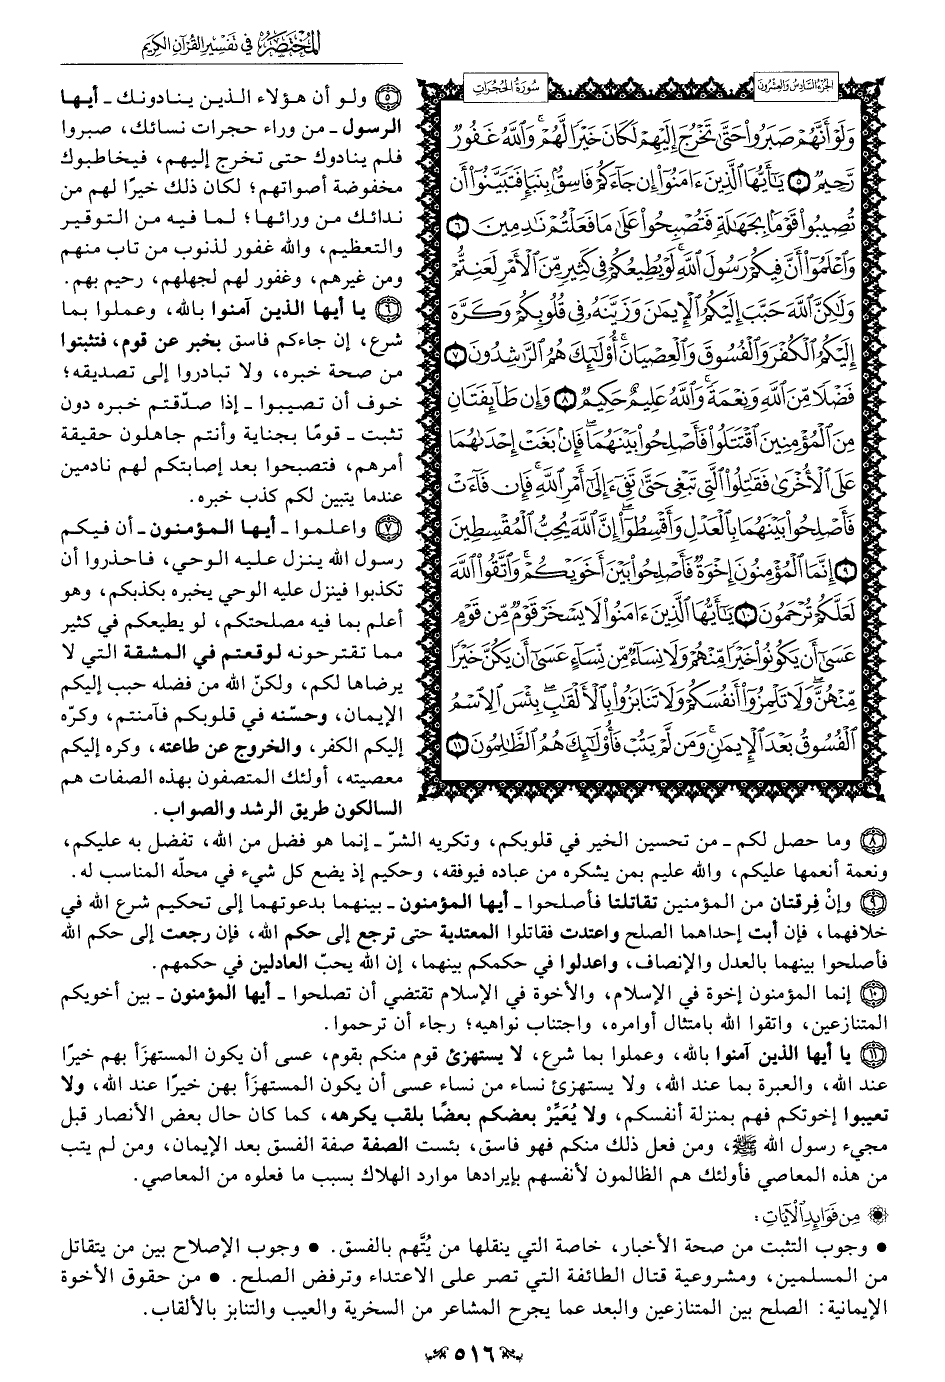 المختصر في تفسير القرآن الكريم
الجزء السادس والعشرون
سورة الحجرات
وَلَوْ أَنَّهُمْ صَبَرُوا۟ حَتَّىٰ تَخْرُجَ إِلَيْهِمْ لَكَانَ خَيْرًا لَّهُمْ ۚ وَٱللَّهُ غَفُورٌ
رَّحِيمٌ ٥ يَـٰٓأَيُّهَا ٱلَّذِينَ ءَامَنُوٓا۟ إِن جَآءَكُمْ فَاسِقٌۢ بِنَبَإٍ فَتَبَيَّنُوٓا۟ أَن
تُصِيبُوا۟ قَوْمًۢا بِجَهَـٰلَةٍ فَتُصْبِحُوا۟ عَلَىٰ مَا فَعَلْتُمْ نَـٰدِمِينَ ٦
وَٱعْلَمُوٓا۟ أَنَّ فِيكُمْ رَسُولَ ٱللَّهِ ۚ لَوْ يُطِيعُكُمْ فِى كَثِيرٍ مِّنَ ٱلْأَمْرِ لَعَنِتُّمْ
وَلَـٰكِنَّ ٱللَّهَ حَبَّبَ إِلَيْكُمُ ٱلْإِيمَـٰنَ وَزَيَّنَهُۥ فِى قُلُوبِكُمْ وَكَرَّهَ
إِلَيْكُمُ ٱلْكُفْرَ وَٱلْفُسُوقَ وَٱلْعِصْيَانَ ۚ أُو۟لَـٰٓئِكَ هُمُ ٱلرَّٰشِدُونَ ٧
فَضْلًا مِّنَ ٱللَّهِ وَنِعْمَةً ۚ وَٱللَّهُ عَلِيمٌ حَكِيمٌ ٨ وَإِن طَآئِفَتَانِ
مِنَ ٱلْمُؤْمِنِينَ ٱقْتَتَلُوا۟ فَأَصْلِحُوا۟ بَيْنَهُمَا ۖ فَإِنۢ بَغَتْ إِحْدَىٰهُمَا
عَلَى ٱلْأُخْرَىٰ فَقَـٰتِلُوا۟ ٱلَّتِى تَبْغِى حَتَّىٰ تَفِىٓءَ إِلَىٰٓ أَمْرِ ٱللَّهِ ۚ فَإِن فَآءَتْ
فَأَصْلِحُوا۟ بَيْنَهُمَا بِٱلْعَدْلِ وَأَقْسِطُوٓا۟ ۖ إِنَّ ٱللَّهَ يُحِبُّ ٱلْمُقْسِطِينَ
٩ إِنَّمَا ٱلْمُؤْمِنُونَ إِخْوَةٌ فَأَصْلِحُوا۟ بَيْنَ أَخَوَيْكُمْ ۚ وَٱتَّقُوا۟ ٱللَّهَ
لَعَلَّكُمْ تُرْحَمُونَ ١٠ يَـٰٓأَيُّهَا ٱلَّذِينَ ءَامَنُوا۟ لَا يَسْخَرْ قَوْمٌ مِّن قَوْمٍ
عَسَىٰٓ أَن يَكُونُوا۟ خَيْرًا مِّنْهُمْ وَلَا نِسَآءٌ مِّن نِّسَآءٍ عَسَىٰٓ أَن يَكُنَّ خَيْرًا
مِّنْهُنَّ ۖ وَلَا تَلْمِزُوٓا۟ أَنفُسَكُمْ وَلَا تَنَابَزُوا۟ بِٱلْأَلْقَـٰبِ ۖ بِئْسَ ٱلِٱسْمُ
ٱلْفُسُوقُ بَعْدَ ٱلْإِيمَـٰنِ ۚ وَمَن لَّمْ يَتُبْ فَأُو۟لَـٰٓئِكَ هُمُ ٱلظَّـٰلِمُونَ ١١
٥ ولو أن هؤلاء الذين ينادونك ـ أيها
الرسول ـ من وراء حجرات نسائك، صبروا
فلم ينادوك حتى تخرج إليهم، فيخاطبوك
مخفوضة أصواتهم؛ لكان ذلك خيرًا لهم من
ندائك من ورائها؛ لما فيه من التوقير
والتعظيم، والله غفور لذنوب من تاب منهم
ومن غيرهم، وغفور لهم لجهلهم، رحيم بهم.
٦ يا أيها الذين آمنوا بالله، وعملوا بما
شرع، إن جاءكم فاسق بخبر عن قوم، فتثبتوا
من صحة خبره، ولا تبادروا إلى تصديقه؛
خوف أن تصيبوا ـ إذا صدّقتم خبره دون
تثبت ـ قومًا بجناية وأنتم جاهلون حقيقة
أمرهم، فتصبحوا بعد إصابتكم لهم نادمين
عندما يتبين لكم كذب خبره.
٧ واعلموا ـ أيها المؤمنون ـ أن فيكم
رسول الله ينزل عليه الوحي، فاحذروا أن
تكذبوا فينزل عليه الوحي يخبره بكذبكم، وهو
أعلم بما فيه مصلحتكم، لو يطيعكم في كثير
مما تقترحونه لوقعتم في المشقة التي لا
يرضاها لكم، ولكنّ الله من فضله حبب إليكم
الإيمان، وحسّنه في قلوبكم فآمنتم، وكرّه
إليكم الكفر، والخروج عن طاعته، وكره إليكم
معصيته، أولئك المتصفون بهذه الصفات هم
السالكون طريق الرشد والصواب.
٨ وما حصل لكم ـ من تحسين الخير في قلوبكم، وتكريه الشرّ ـ إنما هو فضل من الله، تفضل به عليكم،
ونعمة أنعمها عليكم، والله عليم بمن يشكره من عباده فيوفقه، وحكيم إذ يضع كل شيء في محلّه المناسب له.
٩ وإنْ فِرقتان من المؤمنين تقاتلتا فأصلحوا ـ أيها المؤمنون ـ بينهما بدعوتهما إلى تحكيم شرع الله في
خلافهما، فإن أبت إحداهما الصلح واعتدت فقاتلوا المعتدية حتى ترجع إلى حكم الله، فإن رجعت إلى حكم الله
فأصلحوا بينهما بالعدل والإنصاف، واعدلوا في حكمكم بينهما، إن الله يحبّ العادلين في حكمهم.
١٠ إنما المؤمنون إخوة في الإسلام، والأخوة في الإسلام تقتضي أن تصلحوا ـ أيها المؤمنون ـ بين أخويكم
المتنازعين، واتقوا الله بامتثال أوامره، واجتناب نواهيه؛ رجاء أن ترحموا.
١١ يا أيها الذين آمنوا بالله، وعملوا بما شرع، لا يستهزئ قوم منكم بقوم، عسى أن يكون المستهزَأ بهم خيرًا
عند الله، والعبرة بما عند الله، ولا يستهزئ نساء من نساء عسى أن يكون المستهزَأ بهن خيرًا عند الله، ولا
تعيبوا إخوتكم فهم بمنزلة أنفسكم، ولا يُعَيِّرْ بعضكم بعضًا بلقب يكرهه، كما كان حال بعض الأنصار قبل
مجيء رسول الله ﷺ، ومن فعل ذلك منكم فهو فاسق، بئست الصفة صفة الفسق بعد الإيمان، ومن لم يتب
من هذه المعاصي فأولئك هم الظالمون لأنفسهم بإيرادها موارد الهلاك بسبب ما فعلوه من المعاصي.
من فوائد الآيات:
• وجوب التثبت من صحة الأخبار، خاصة التي ينقلها من يُتَّهم بالفسق. • وجوب الإصلاح بين من يتقاتل
من المسلمين، ومشروعية قتال الطائفة التي تصر على الاعتداء وترفض الصلح. • من حقوق الأخوة
الإيمانية: الصلح بين المتنازعين والبعد عما يجرح المشاعر من السخرية والعيب والتنابز بالألقاب.
٥١٦